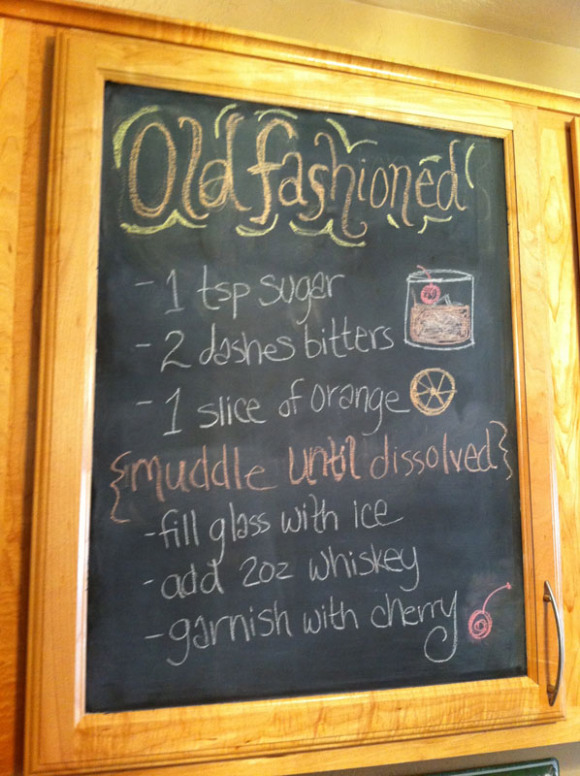 Old fashioned
- 1 tsp sugar
- 2 dashes bitters
- 1 slice of orange
{muddle until dissolved}
- fill glass with ice
- add 2oz whiskey
- garnish with cherry